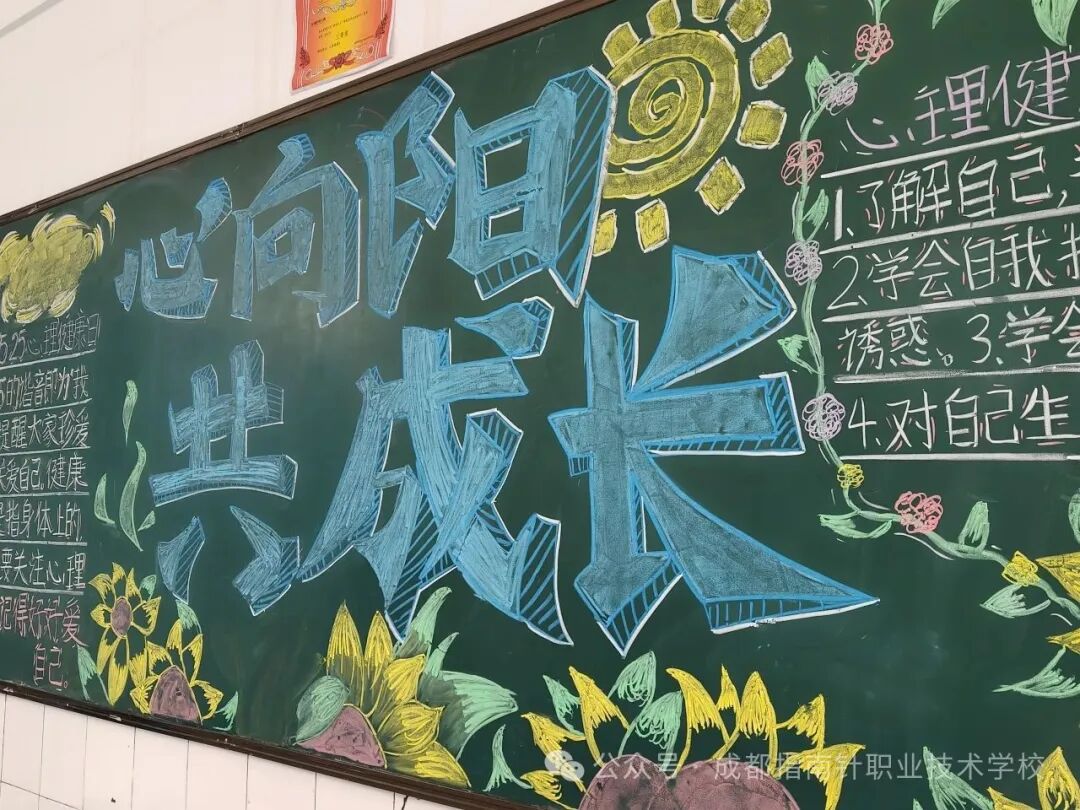 心向阳
共成长
5.25心理健康日
的谐音即为我
提醒大家珍爱
关爱自己。健康
是指身体上的
要关注心理
记得好好爱
自己。
心理健
1.了解自己,
2.学会自我
诱惑。3.学会
4.对自己生
公众号·成都指南针职业技术学校